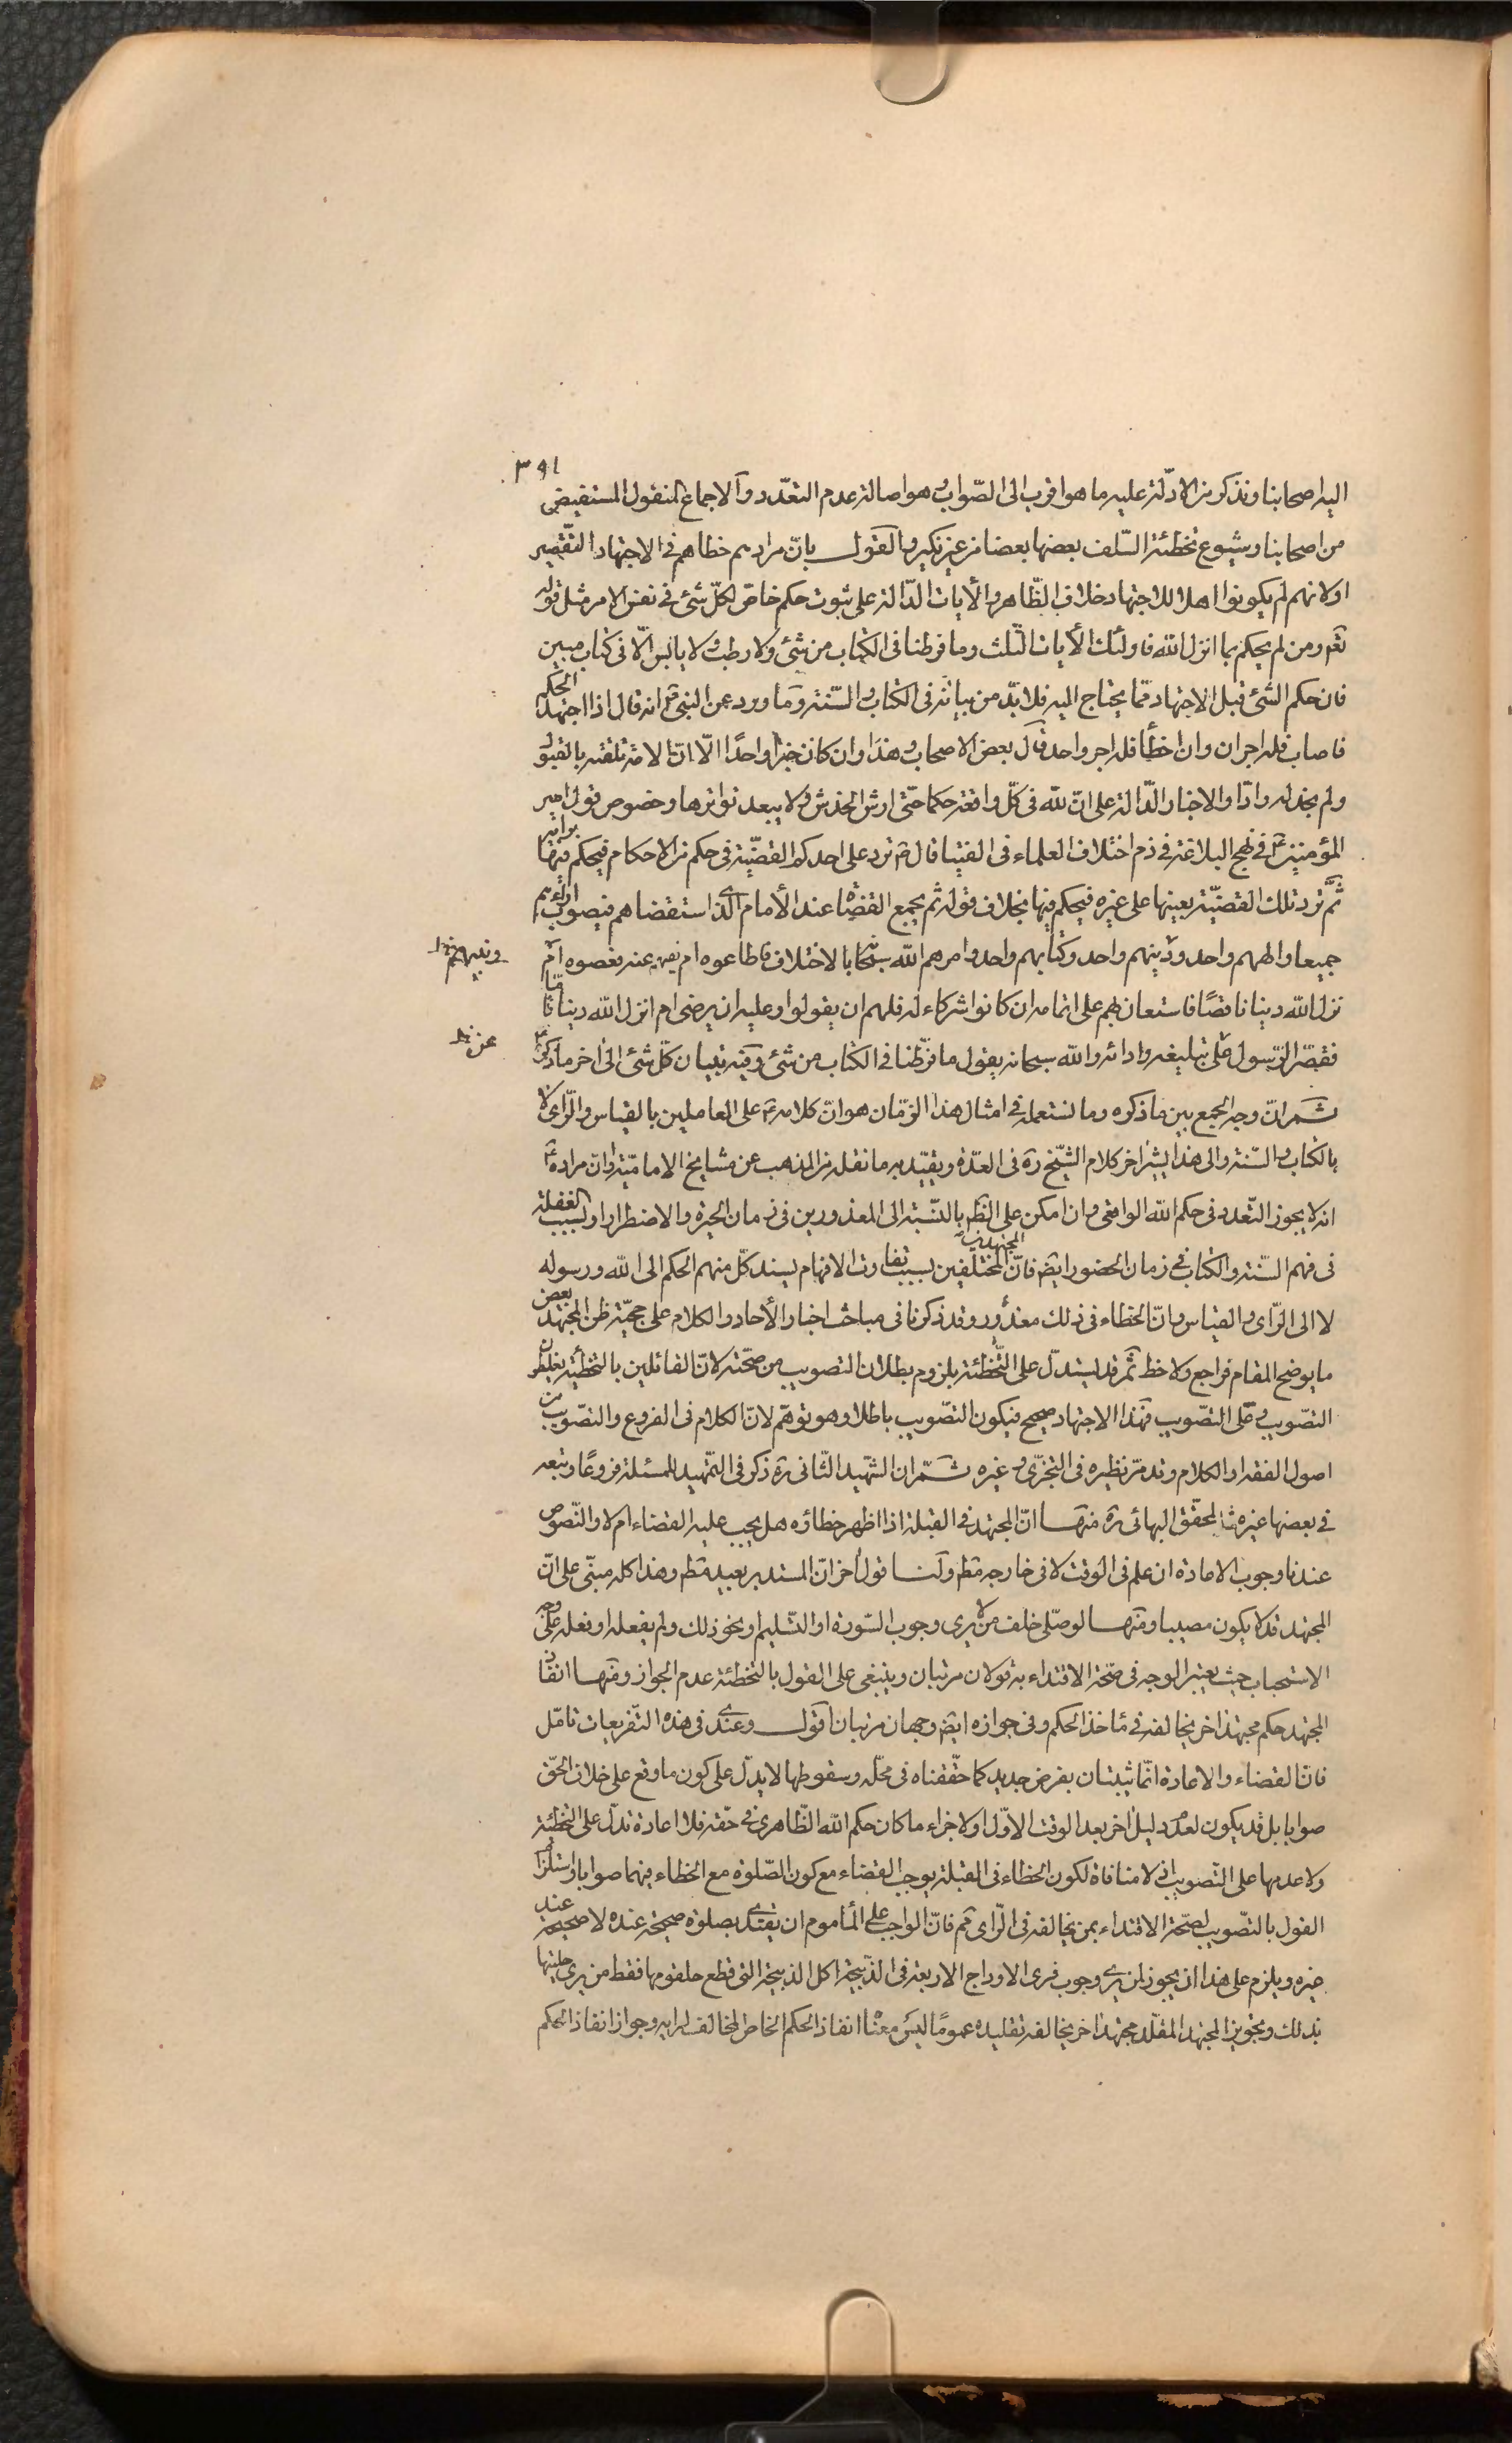 ٣٩١
اليه اصحابنا ونذكر من الادلّة عليه ما هو اقرب الى الصّواب وهو اصالة عدم التعدّد والاجماع المنقول المستفيض
من اصحابنا وشيوع تخطئة السّلف بعضها بعضا من غير نكير والقول بانّ مرادهم خطاهم فى الاجتهاد التقصير
او لانهم لم يكونوا اهلا للاجتهاد خلاف الظّاهر والأيات الدّالة على ثبوت حكم خاصّ لكلّ شئ فى نفس الامر مثل قوله
تعم ومن لم يحكم بما انزل الله فاولئك الأيات الثلث وما فرطنا فى الكتاب من شئ ولا رطب ولا يابس الّا فى كتاب مبين
فان حكم الشئ قبل الاجتهاد ممّا يحتاج اليه فلا بدّ من بيانه فى الكتاب والسّنة وما ورد عن النبى ص انه قال اذا اجتهد الحاكم
فاصاب فله اجران وان اخطأ فله اجر واحد قال بعض الاصحاب وهذا وان كان خبرا واحدًا الّا انّ الامّة تلقته بالقبول
ولم نجد له رادّا والاخبار الدّالة على انّ لله فى كلّ واقعة حكما حتّى ارش الخدش ولا يبعد تواترها وخصوص قول امير
المؤمنين ع فى نهج البلاغة فى ذم اختلاف العلماء فى الفتيا قال ع ترد على احدكم القضيّة فى حكم من الاحكام فيحكم فيها برأيه
ثمّ ترد تلك القضيّة بعينها على غيره فيحكم فيها بخلاف قوله ثم يجمع القضاة عند الأمام الّذى استقضاهم فيصوب اراءهم
جميعا والههم واحد ودينهم واحد وكتابهم واحد وامرهم الله سبحانه بالاختلاف فاطاعوه ام نهيهم عنه فعصوه ام
ونبيهم خ
نزل الله دينا ناقصًا فاستعان بهم على اتمامه ان كانوا شركاء له فلهم ان يقولوا وعليه ان يرضى ام انزل الله دينا تامّا
فقصّر الرّسول ص على تبليغه وادائه والله سبحانه يقول ما فرّطنا فى الكتاب من شئ وفيه تبيان كلّ شئ الى اخر ما ذكره ع
عن خ
ثمّ انّ وجه الجمع بين ما ذكره وما نستعمله فى امثال هذا الزّمان هو انّ كلامه ع على العاملين بالقياس والرّاى لا
بالكتاب والسّنة والى هذا يشير اخر كلام الشّيخ ره فى العدّة ويقيّد به ما نقله من المذهب عن مشايخ الاماميّة وانّ مراده ع
انه لا يجوز التعدد فى حكم الله الواقعى وان امكن على الظم بالنّسبة الى المعذورين فى زمان الحيرة والاضطرار او بسبب الغفلة
فى فهم السّنة والكتاب فى زمان الحضور ايض فانّ المجتهدين المختلفين بسبب تفاوت الافهام يسند كلّ منهم الحكم الى الله ورسوله
لا الى الرّاى والقياس وانّ الخطاء فى ذلك معذور وقد ذكرنا فى مباحث اخبار الأحاد والكلام على حجيّة ظن المجتهد بعض
ما يوضح المقام فراجع ولاحظ ثمّ قد يستدلّ على التّخطئة بلزوم بطلان التصويب من صحّته لانّ القائلين بالتخطئة يغلطون
التصويب وعلى التصويب فهذا الاجتهاد صحيح فيكون التصّويب باطلا وهو توهّم لانّ الكلام فى الفروع والتصّويب من
اصول الفقه او الكلام وقد مرّ نظيره فى التجزّى وغيره ثمّ ان الشهيد الثّانى ره ذكر فى التمّهيد للمسئلة فروعًا وتبعه
فى بعضها غيره كالمحقّق البهائى ره منها انّ المجتهد فى القبلة اذا اظهر خطاؤه هل يجب عليه القضاء ام لا والنّصوص
عندنا وجوب الاعادة ان علم فى الوقت لا فى خارجه مظم ولنا قول اخر انّ المستدبر يعيد مظم وهذا كله مبنى على انّ
المجتهد قد لا يكون مصيبا ومنها لو صلّى خلف من لا يرى وجوب السّورة او التسّليم او نحو ذلك ولم يفعله او فعله على وجه
الاستحباب حيث يعتبر الوجه فى صحّة الاقتداء به قولان مرتبان وينبغى على القول بالتخطئة عدم الجواز ومنها انفاذ
المجتهد حكم مجتهد اخر يخالفه فى مأخذ الحكم وفى جوازه ايض وجهان مرتبان اقول وعندى فى هذه التّفريعات تامّل
فانّ القضاء والاعادة انّما يثبتان بفرض جديد كما حقّقناه فى محلّه وسقوطها لا يدلّ على كون ما وقع على خلاف الحقّ
صوابا بل قد يكون لعدم دليل اخر بعد الوقت الاوّل او لاجزاء ما كان حكم الله الظّاهرى فى حقّه فلا اعادة تدلّ على التخطئة
ولا عدمها على التّصويب اذ لا منافاة لكون الخطاء فى القبلة يوجب القضاء مع كون الصّلوة مع الخطاء فيهما صوابا واستلزام
القول بالتصّويب لصحّة الاقتداء بمن يخالفه فى الرّاى مم فانّ الواجب على المأموم ان يقتدى بصلوة صحيحة عنده لا صحيحة عند
غيره ويلزم على هذا ان يجوز لمن يرى وجوب فرى الاوداج الاربعة فى الذّبيحة اكل الذبيحة التى قطع حلقومها فقط من يرى حليتها
بذلك وتجويز المجتهد المقلّد مجتهد اخر يخالفه تقليده عمومًا ليس معناه انفاذ الحكم الخاص المخالف لرايه وجواز انفاذ الحكم